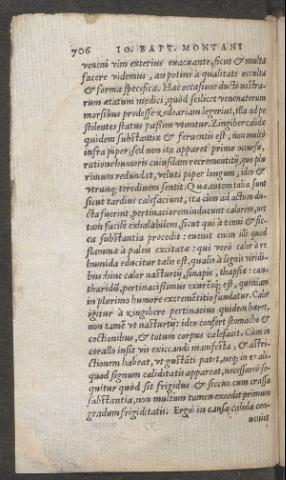 706 IO. BAPT. MONTANI
veneni vim exterius euacuante, sicut & multa
facere videmus, an potius à qualitate occulta
& forma specifica. Hac occasione ducti nostra-
rum ætatum medici, quòd scilicet venenatorum
morsibus prodesse zedoariam legerint, illa ad pe
stilentes status passim vtuntur. Zingiber calidæ
quidem substantiæ & feruentis est, non multò
infra piper, sed non ita apparet primo occursu,
ratione humoris cuiusdam recrementitij, quo plu
rimum redundat, veluti piper longum, ideo &
vtrunq; teredinem sentit. Quæ autem talia sunt
sicut tardius calefaciunt, ita cùm ad actum du-
cta fuerint, pertinaciorem inducunt calorem, nec
tam facilè exhalabilem, sicut qui à tenui & sic-
ca substantia procedit: euenit enim illi quod
flammæ à paleis excitatæ: qui verò calor à re
humida educitur talis est, qualis à lignis viridi-
bus: hinc calor nasturtij, sinapis, thapsiæ: can-
tharidũ, pertinacissimus exurẽsq; est, quoniam
in plurimo humore excremẽtitio fundatur. Calor
igitur à zingibere pertinatius quidem hæret,
non tamẽ vt nasturtij: ideo confert stomacho &
coctionibus, & totum corpus calefacit. Cùm in
corallo insit vis exiccandi manifesta, & astri-
ctionem habeat, vt gustãti patet, neq; in eo ali-
quod signum caliditatis appareat, necessariò se-
quitur quòd sit frigidus & siccus cum crassa
substantia, non multum tamen excedat primum
gradum frigiditatis. Ergo in causa calida con-
ueniet